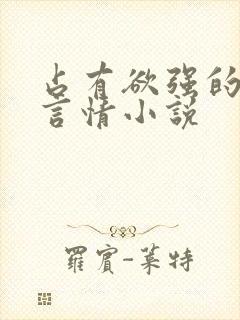 占有欲强的
言情小说
羅賓-萊特